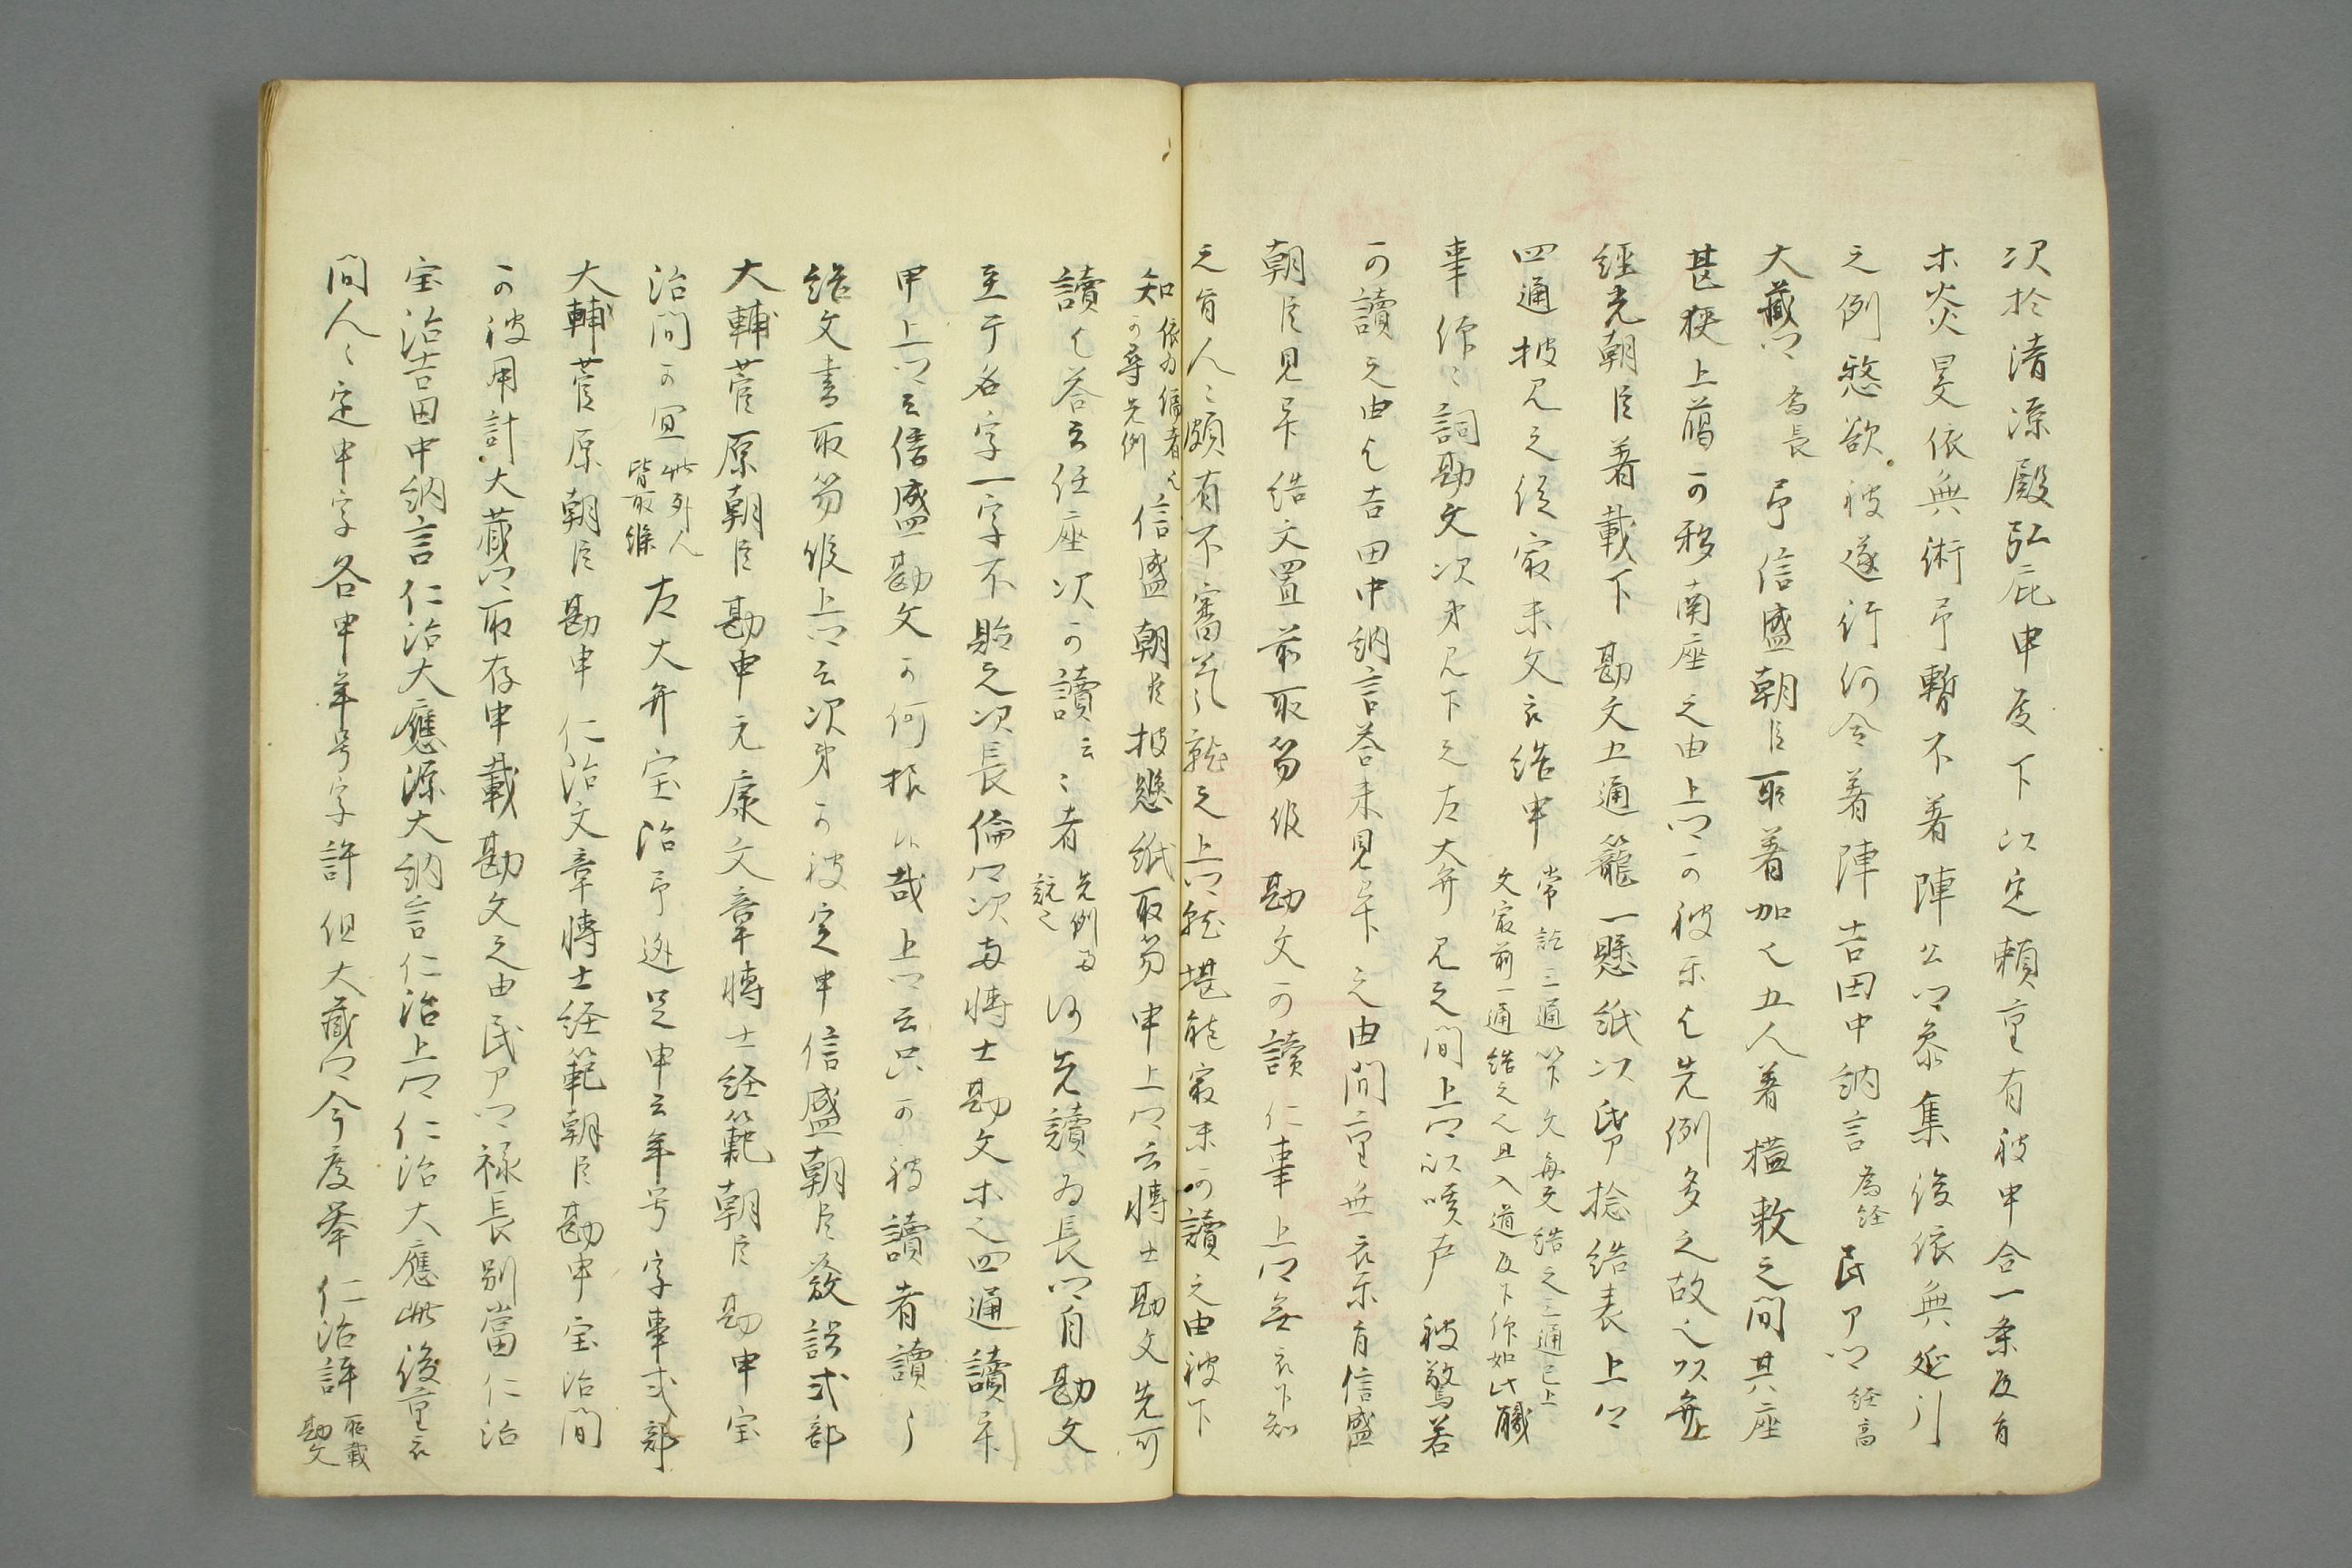 次於清凉殿弘庇申殿下以定頼皇有被申合一条殿有
木炎旻依無術予暫不着陣公卿参集後依無延引
之例愁欲被遂行仍令着陣吉田中納言為経民部卿経高
大蔵卿為長予信盛朝臣取着加也五人着橘敷之間其座
甚狭上臈可移南座之由上卿可被示也先例多之故也以弁
経光朝臣着載下勘文五通籠一懸紙以紙捻結表上卿
四通披見之後最末文を結申常説三通以下文毎度結之三通已上
文最前一通結之也且入道殿下作如此職
事作々詞勘文次第見下之左大弁見之間上卿以咳声被驚若
可読之由也吉田中納言答未見畢之由間重無被示有信盛
朝臣見畢結文置前取笏候勘文可読仁事上卿無被下知
之有人々頗有不審気就之上卿就堪能最末可読之由被下
知依為儒者也可尋先例信盛朝臣披懸紙取笏申上卿云博士勘文先可
読也答云任座次可読云々者先例両説之仍先読為長卿自勘文
至于名字一字不貽之次長倫卿次両博士勘文木也四通読畢
申上卿云信盛勘文可何様候哉上卿云只可被読者読了
結文書取笏候上卿云次第可被定申信盛朝臣発語式部
大輔菅原朝臣勘申元康文章博士経範朝臣勘申宝
治間可宜此外人皆取條左大弁宝治予逃足申云年号字事式部
大輔菅原朝臣勘申仁治文章博士経範朝臣勘申宝治間
可被用計大蔵卿取存申載勘文之由民部卿禄長別当仁治
宝治吉田中納言仁治大応源大納言仁治上卿仁治大応此後重被
問人々定申字各申年号字許但大蔵卿今度挙仁治許取載勘文